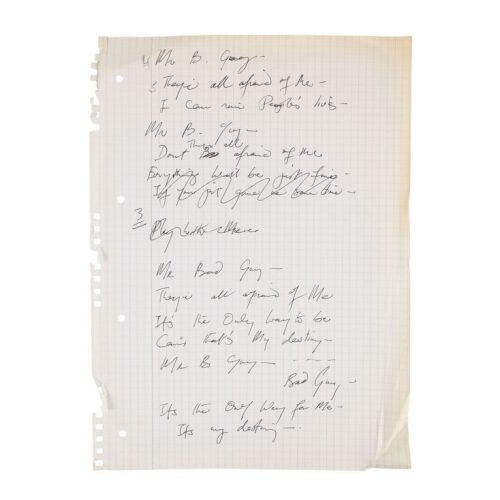 4 Mr B. Guy —
5 They're all afraid of Me —
I can ruin People's lives —
Mr B. Guy —
They're all
Dont afraid of Me
Everything
If you just
3
Mr Bad Guy —
They're all afraid of Me
It's the Only Way to be
that's My destiny —
Mr B Guy — - - - -
Bad Guy —
Its the Only Way for Me —
Its my destiny —.